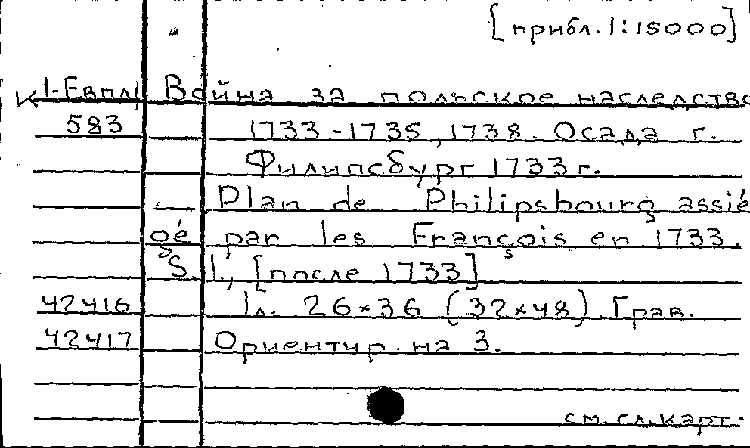 [прибл. 1:15000]
К 1-Евпл Война за польское наследство
583 1733-1735, 1738. Осада г.
Филипсбург 1733 г.
Plan de Philipsbourg assié
gé par les François en 1733.
S. l., [после 1733]
42416 1 л. 26×36 (32×48). Грав.
42417 Ориентир. на З.
см. сл. карт.